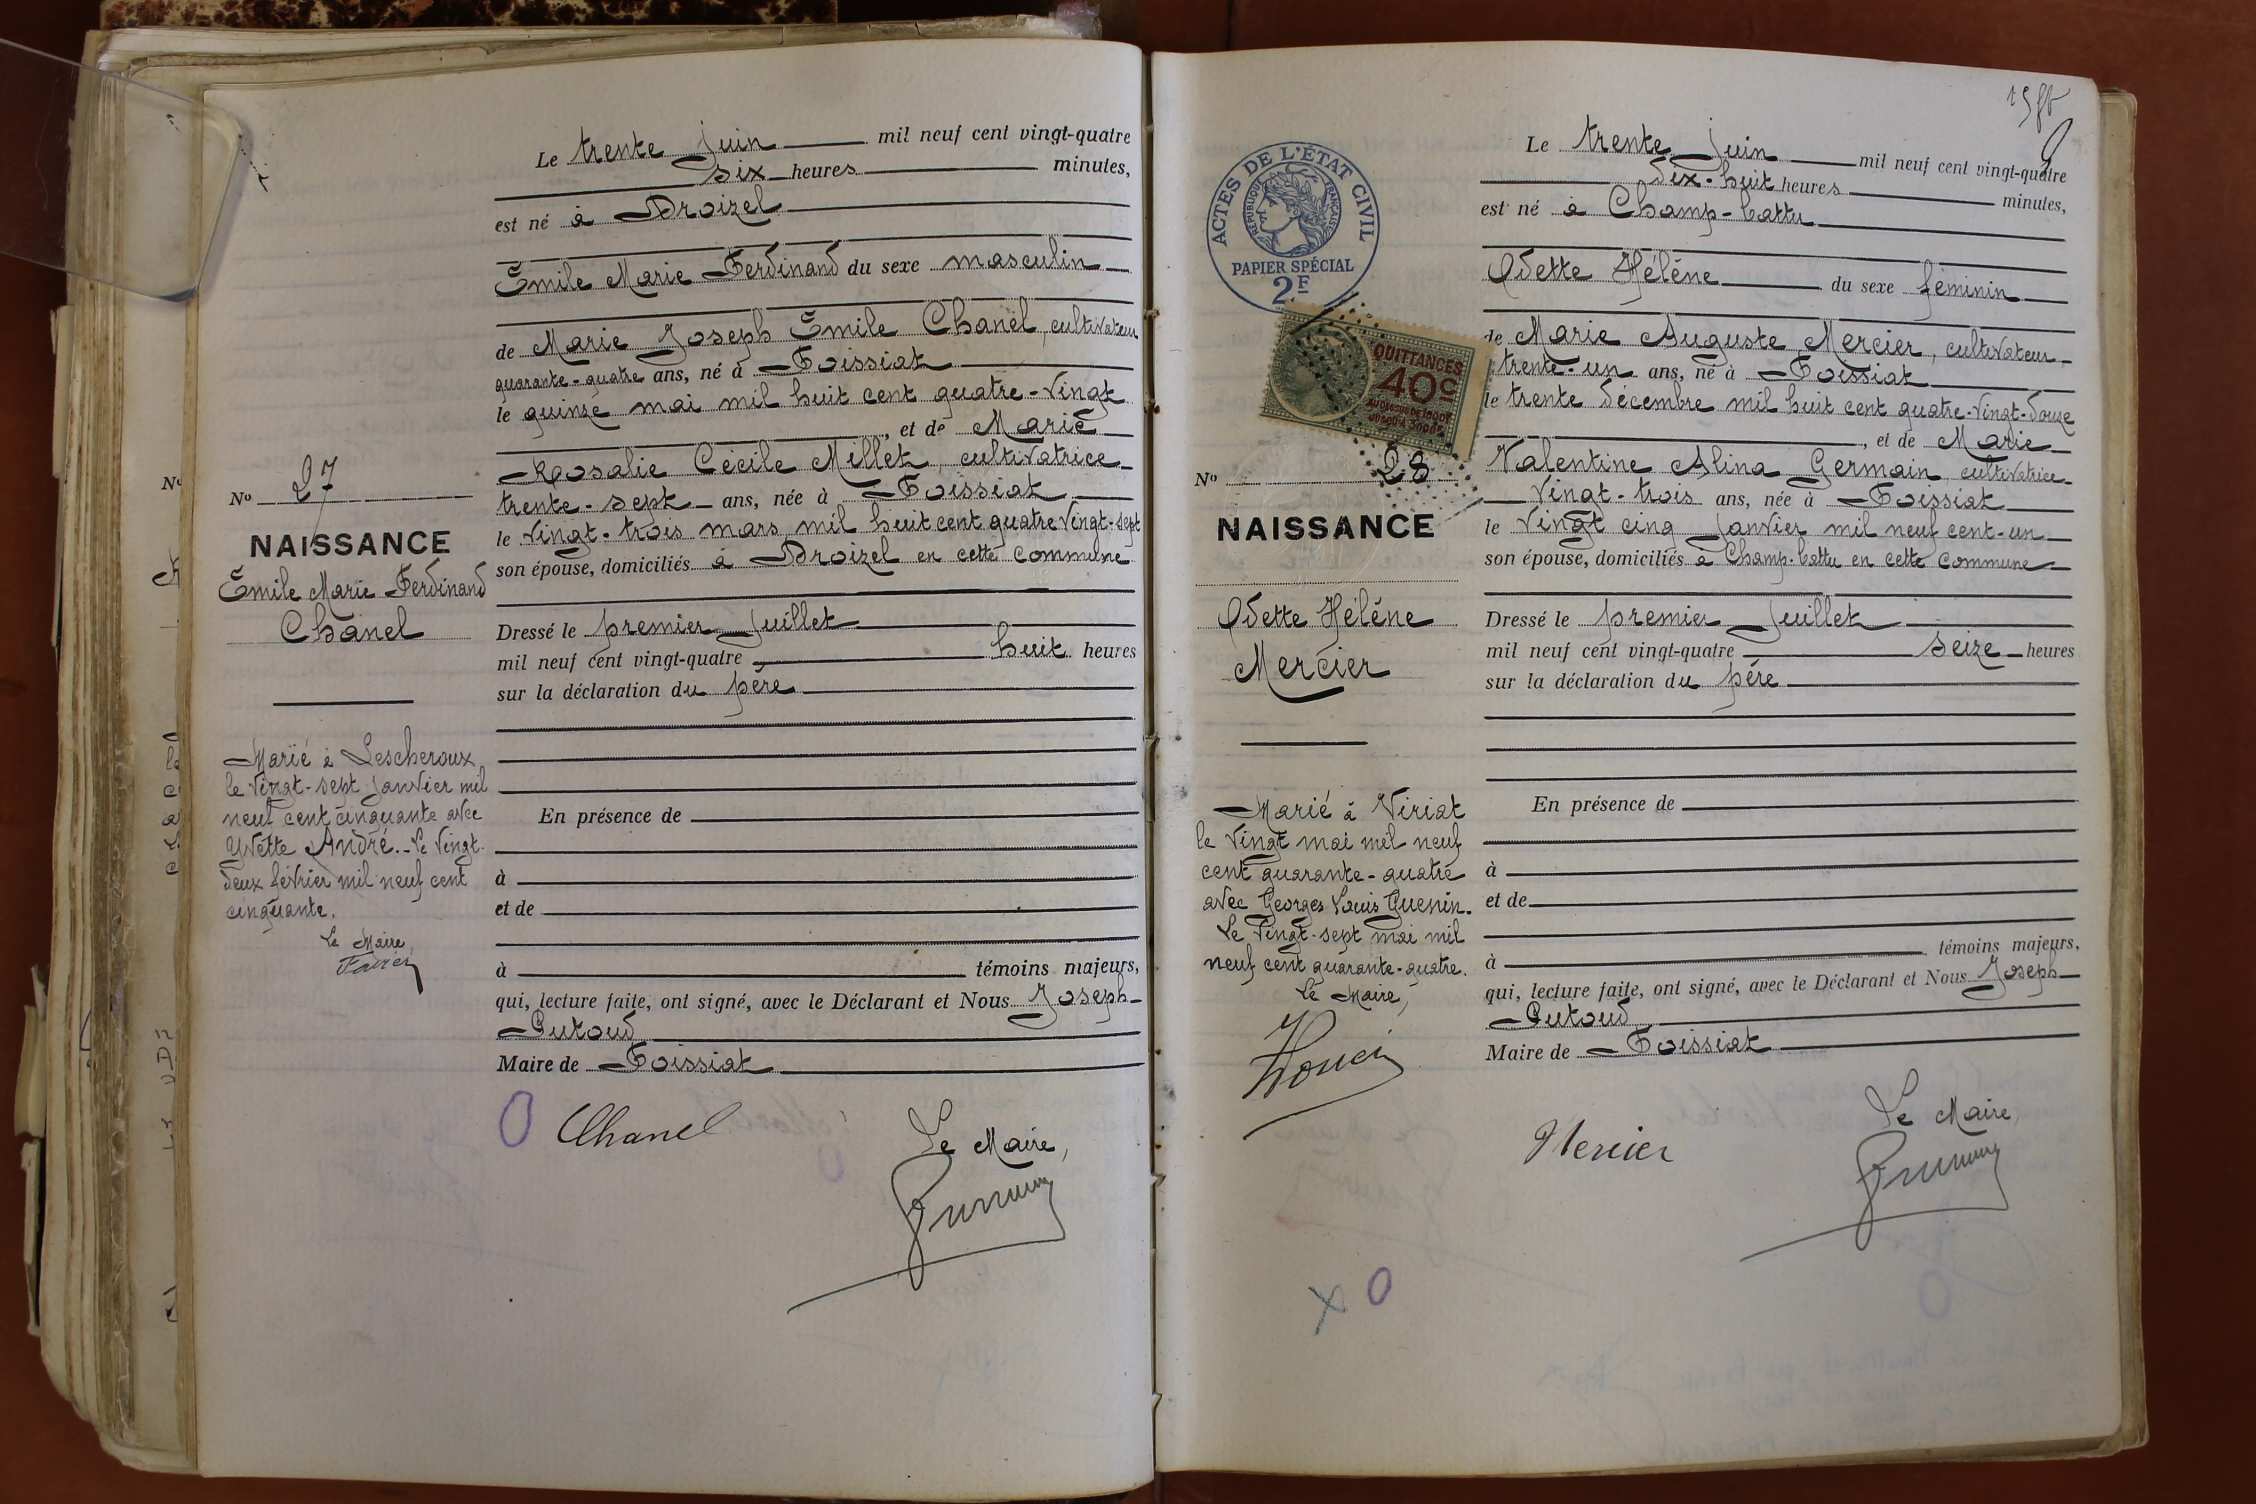 Le trente juin mil neuf cent vingt-quatre
six heures minutes,
est né à Droizel
Émile Marie Ferdinand du sexe masculin
de Marie Joseph Émile Chanel, cultivateur
quarante-quatre ans, né à Foissiat
le quinze mai mil huit cent quatre-vingt
, et de Marie
Rosalie Cécile Millet, cultivatrice
trente-sept ans, née à Foissiat
le vingt-trois mars mil huit cent quatre vingt-sept
son épouse, domiciliés à Droizel en cette commune
Dressé le premier juillet
mil neuf cent vingt-quatre huit heures
sur la déclaration du père
En présence de
à
et de
à témoins majeurs,
qui, lecture faite, ont signé, avec le Déclarant et Nous Joseph
Putoud
Maire de Foissiat
Chanel
Le Maire,
No 27
NAISSANCE
Émile Marie Ferdinand
Chanel
Marié à Lescheroux
le vingt-sept janvier mil
neuf cent cinquante avec
Yvette André. Le vingt-
deux février mil neuf cent
cinquante.
Le Maire,
ACTES DE L'ÉTAT CIVIL
RÉPUBLIQUE FRANÇAISE
PAPIER SPÉCIAL
2F
QUITTANCES
40c
No 28
NAISSANCE
Odette Hélène
Mercier
Marié à Viriat
le vingt mai mil neuf
cent quarante-quatre
avec Georges Louis Guenin.
Le vingt-sept mai mil
neuf cent quarante-quatre.
Le Maire,
Le trente juin mil neuf cent vingt-quatre
dix-huit heures minutes,
est né à Champ-battu
Odette Hélène du sexe féminin
de Marie Auguste Mercier, cultivateur
trente-un ans, né à Foissiat
le trente décembre mil huit cent quatre-vingt-douze
, et de Marie
Valentine Alina Germain, cultivatrice
vingt-trois ans, née à Foissiat
le vingt cinq janvier mil neuf cent-un
son épouse, domiciliés à Champ-battu en cette commune
Dressé le premier juillet
mil neuf cent vingt-quatre seize heures
sur la déclaration du père
En présence de
à
et de
à témoins majeurs,
qui, lecture faite, ont signé, avec le Déclarant et Nous Joseph
Putoud
Maire de Foissiat
Mercier
Le Maire,